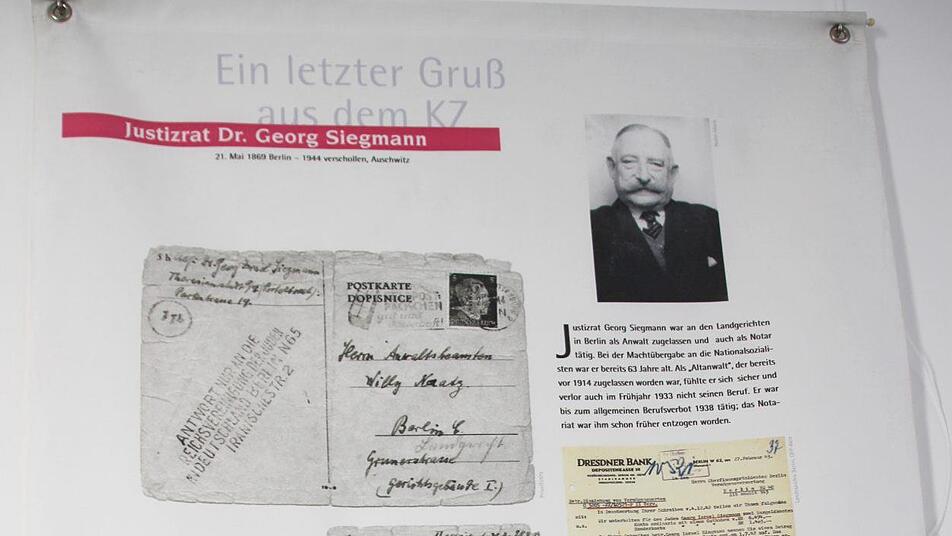 Ein letzter Gruß
aus dem KZ
Justizrat Dr. Georg Siegmann
21. Mai 1869 Berlin – 1944 verschollen, Auschwitz
Georg Israel Siegmann
Theresienstadt
Parkstrasse 14
POSTKARTE
DOPISNICE
Herrn Anwaltsbeamten
Willy Naatz
Berlin C.
Landgericht
Grunerstrasse
(Gerichtsgebäude I.)
ANTWORT NUR IN DIE
REICHSVEREINIGUNG DER JUDEN
IN DEUTSCHLAND BERLIN N65
IRANISCHESTR. 2
Justizrat Georg Siegmann war an den Landgerichten
in Berlin als Anwalt zugelassen und auch als Notar
tätig. Bei der Machtübergabe an die Nationalsoziali-
sten war er bereits 63 Jahre alt. Als „Altanwalt“, der bereits
vor 1914 zugelassen worden war, fühlte er sich sicher und
verlor auch im Frühjahr 1933 nicht seinen Beruf. Er war
bis zum allgemeinen Berufsverbot 1938 tätig; das Nota-
riat war ihm schon früher entzogen worden.
37
DRESDNER BANK
DEPOSITENKASSE
BERLIN W 62, den 27. Februar 43.
Herrn Oberfinanzpräsidenten Berlin
Berlin